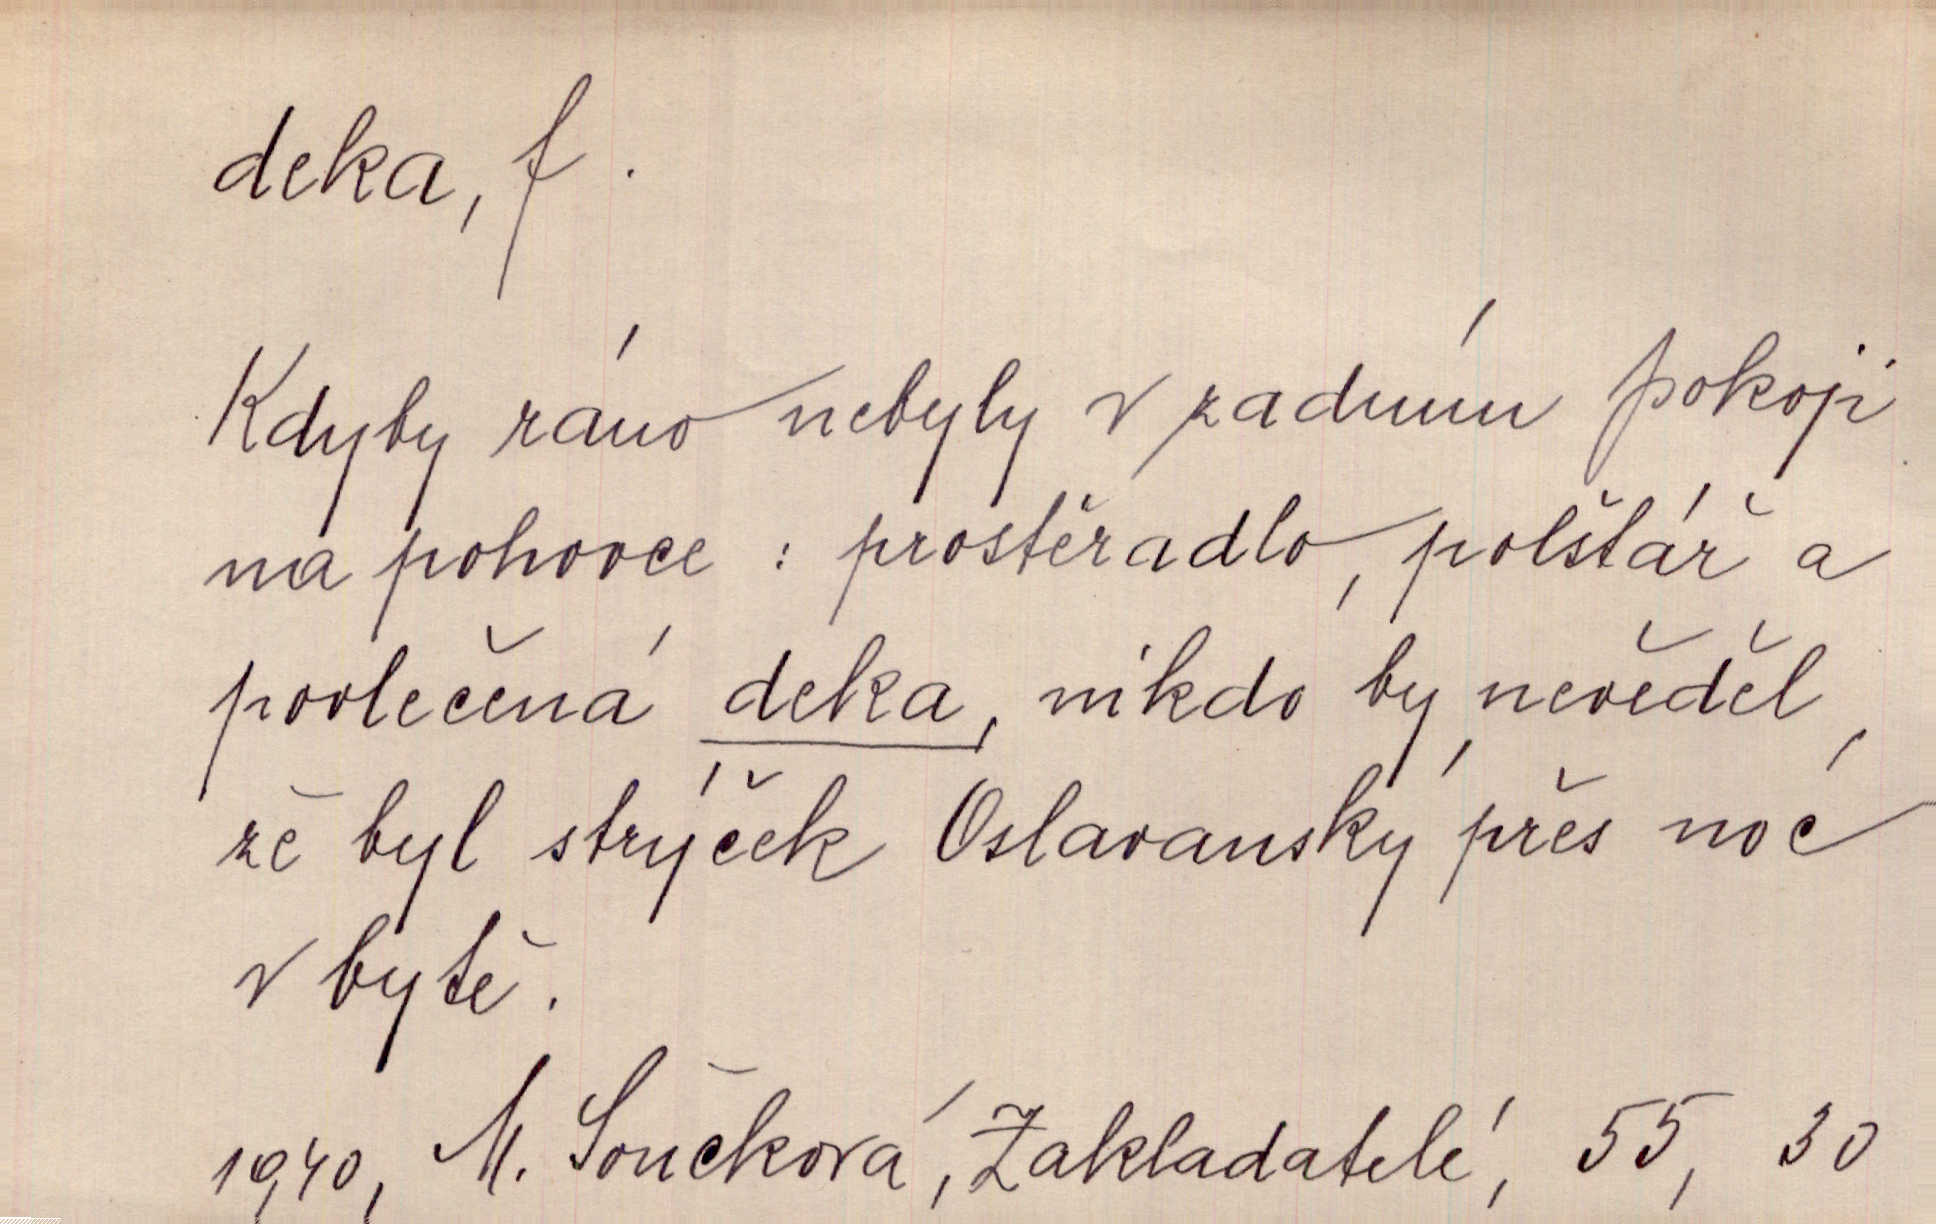 deka, f.
Kdyby ráno nebyly v zadním pokoji
na pohovce : prostěradlo, polštář a
povlečená deka, nikdo by nevěděl,
že byl strýček Oslavanský přes noc
v bytě.
1940, M. Součková, Zakladatelé, 55, 30